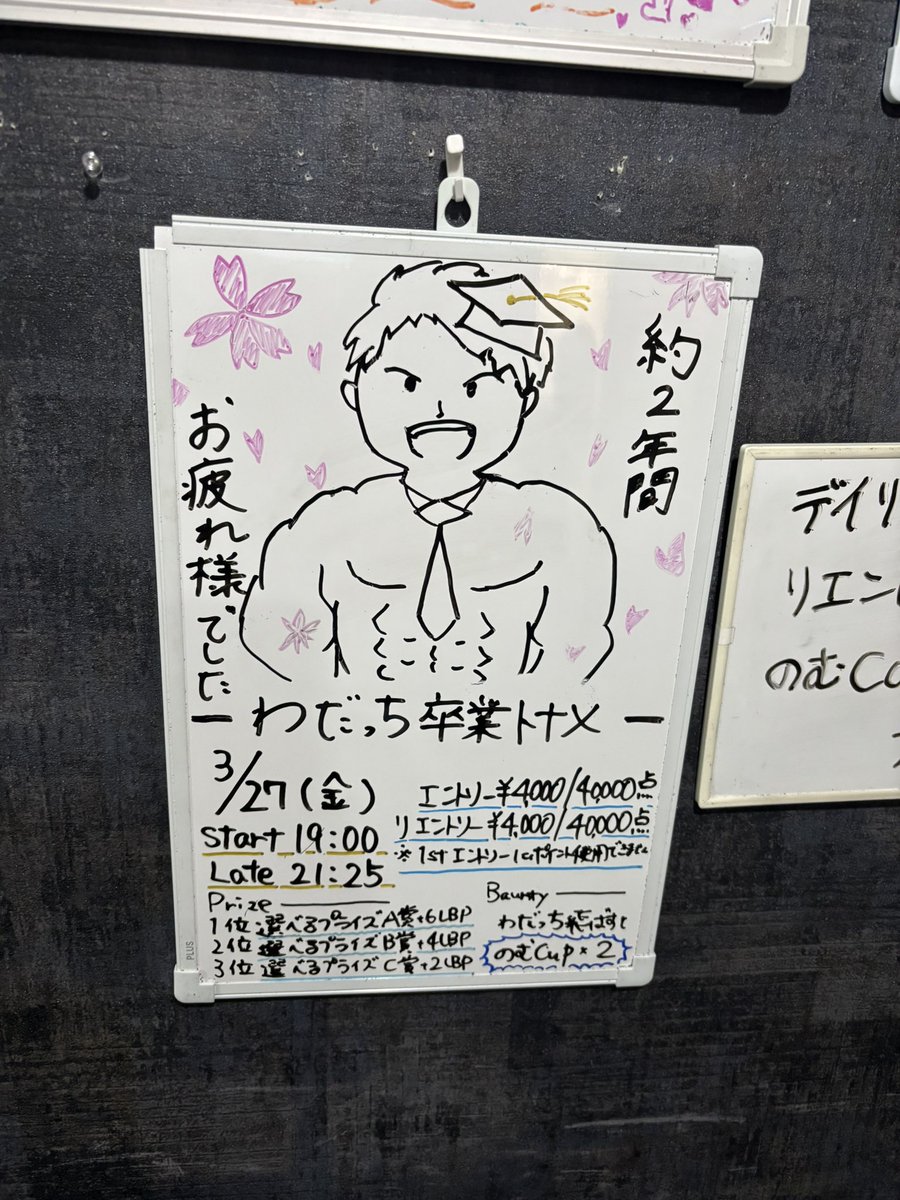 約2年間
お疲れ様でした
ー わだっち卒業トナメ ー
3/27(金)
Start 19:00
Late 21:25
エントリー ¥4,000/40,000点
リエントリー ¥4,000/40,000点
※1stエントリーにポイント使用できません
Prize
1位 選べるプライズA賞+6LBP
2位 選べるプライズB賞+4LBP
3位 選べるプライズC賞+2LBP
Baunty
わだっち飛ばすと
のむCup×2
PLUS
デイリ
リエン
のむC